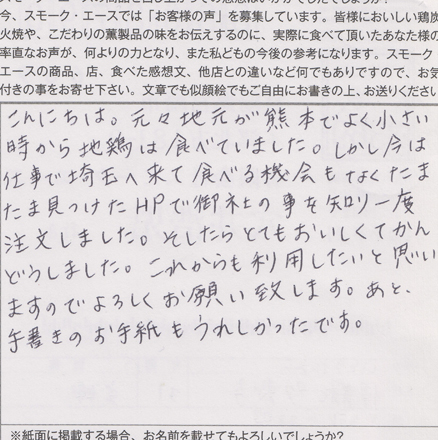 今、スモーク・エースでは「お客様の声」を募集しています。皆様においしい鶏炭
火焼や、こだわりの薫製品の味をお伝えするのに、実際に食べて頂いたあなた様の
率直なお声が、何よりの力となり、また私どもの今後の参考になります。スモーク
エースの商品、店、食べた感想文、他店との違いなど何でもありですので、お気
付きの事をお寄せ下さい。文章でも似顔絵でもご自由にお書きの上、お送りください
こんにちは。元々地元が熊本でよく小さい
時から地鶏は食べていました。しかし今は
仕事で埼玉へ来て食べる機会もなくたま
たま見つけたHPで御社の事を知り一度
注文しました。そしたらとてもおいしくてかん
どうしました。これからも利用したいと思い
ますのでよろしくお願い致します。あと、
手書きのお手紙もうれしかったです。
※紙面に掲載する場合、お名前を載せてもよろしいでしょうか?